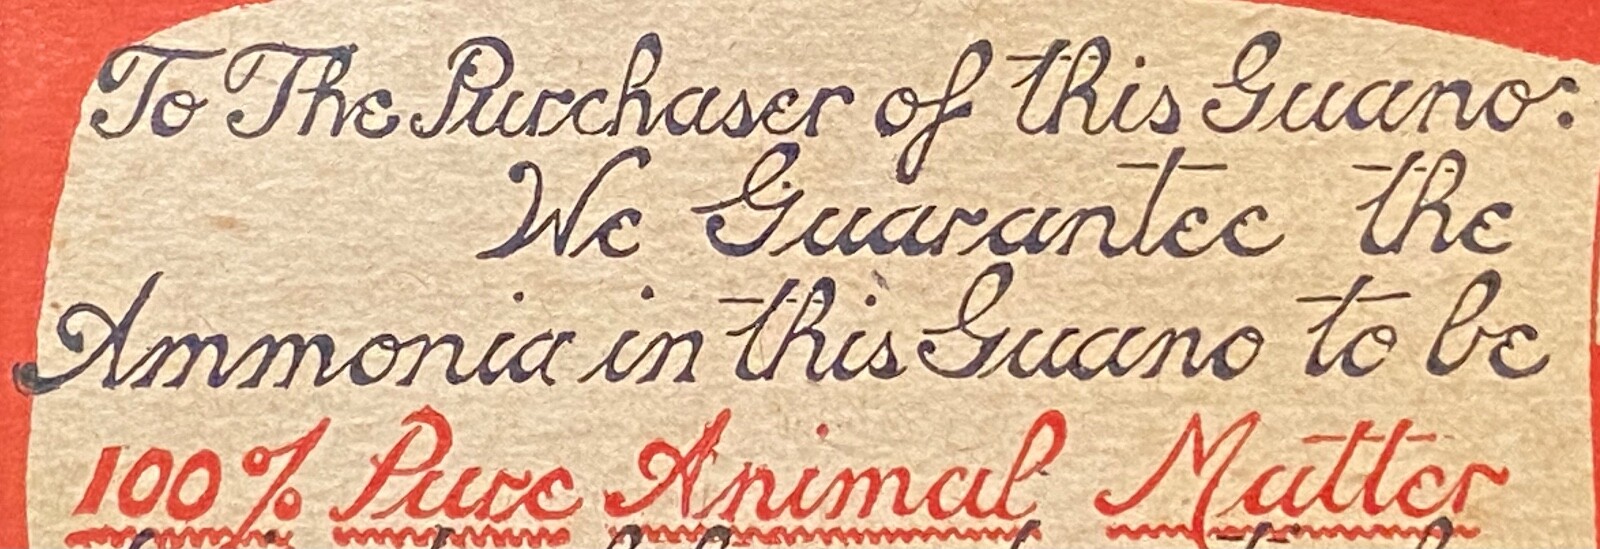 To The Purchaser of this Guano:
We Guarantee the
Ammonia in this Guano to be
100% Pure Animal Matter